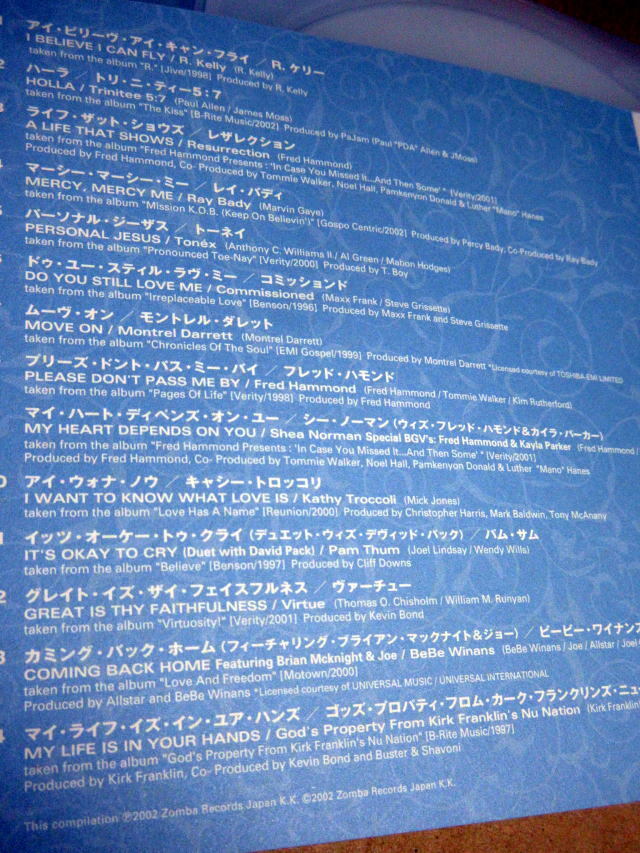 アイ・ビリーヴ・アイ・キャン・フライ / R. ケリー
I BELIEVE I CAN FLY / R. Kelly (R. Kelly)
taken from the album "R." [Jive/1998] Produced by R. Kelly
2 ハーラ / トリ・ニ・ティー5:7
HOLLA / Trinitee 5:7 (Paul Allen / James Moss)
taken from the album "The Kiss" [B-Rite Music/2002] Produced by PaJam (Paul "PDA" Allen & JMoss)
3 ライフ・ザット・ショウズ / レザレクション
A LIFE THAT SHOWS / Resurrection (Fred Hammond)
taken from the album "Fred Hammond Presents : 'In Case You Missed It...And Then Some' " [Verity/2001]
Produced by Fred Hammond, Co- Produced by Tommie Walker, Noel Hall, Pamkenyon Donald & Luther "Mano" Hanes
4 マーシー・マーシー・ミー / レイ・バディ
MERCY, MERCY ME / Ray Bady (Marvin Gaye)
taken from the album "Mission K.O.B. (Keep On Believin')" [Gospo Centric/2002] Produced by Percy Bady, Co-Produced by Ray Bady
5 パーソナル・ジーザス / トーネイ
PERSONAL JESUS / Tonéx (Anthony C. Williams II / Al Green / Mabon Hodges)
taken from the album "Pronounced Toe-Nay" [Verity/2000] Produced by T. Boy
ドゥ・ユー・スティル・ラヴ・ミー / コミッションド
DO YOU STILL LOVE ME / Commissioned (Maxx Frank / Steve Grissette)
taken from the album "Irreplaceable Love" [Benson/1996] Produced by Maxx Frank and Steve Grissette
ムーヴ・オン / モントレル・ダレット
MOVE ON / Montrel Darrett (Montrel Darrett)
taken from the album "Chronicles Of The Soul" [EMI Gospel/1999] Produced by Montrel Darrett *Licensed courtesy of TOSHIBA-EMI LIMITED
プリーズ・ドント・パス・ミー・バイ / フレッド・ハモンド
PLEASE DON'T PASS ME BY / Fred Hammond (Fred Hammond / Tommie Walker / Kim Rutherford)
taken from the album "Pages Of Life" [Verity/1998] Produced by Fred Hammond
マイ・ハート・ディペンズ・オン・ユー / シー・ノーマン (ウィズ・フレッド・ハモンド&カイラ・パーカー)
MY HEART DEPENDS ON YOU / Shea Norman Special BGV's: Fred Hammond & Kayla Parker (Fred Hammond /
taken from the album "Fred Hammond Presents : 'In Case You Missed It...And Then Some' " [Verity/2001]
Produced by Fred Hammond, Co- Produced by Tommie Walker, Noel Hall, Pamkenyon Donald & Luther "Mano" Hanes
0 アイ・ウォナ・ノウ / キャシー・トロッコリ
I WANT TO KNOW WHAT LOVE IS / Kathy Troccoli (Mick Jones)
taken from the album "Love Has A Name" [Reunion/2000] Produced by Christopher Harris, Mark Baldwin, Tony McAnany
1 イッツ・オーケー・トゥ・クライ (デュエット・ウィズ・デヴィッド・パック) / パム・サム
IT'S OKAY TO CRY (Duet with David Pack) / Pam Thum (Joel Lindsay / Wendy Wills)
taken from the album "Believe" [Benson/1997] Produced by Cliff Downs
2 グレイト・イズ・ザイ・フェイスフルネス / ヴァーチュー
GREAT IS THY FAITHFULNESS / Virtue (Thomas O. Chisholm / William M. Runyan)
taken from the album "Virtuosity!" [Verity/2001] Produced by Kevin Bond
3 カミング・バック・ホーム (フィーチャリング・ブライアン・マックナイト&ジョー) / ビービー・ワイナンズ
COMING BACK HOME Featuring Brian Mcknight & Joe / BeBe Winans (BeBe Winans / Joe / Allstar / Joel
taken from the album "Love And Freedom" [Motown/2000]
Produced by Allstar and BeBe Winans *Licensed courtesy of UNIVERSAL MUSIC / UNIVERSAL INTERNATIONAL
4 マイ・ライフ・イズ・イン・ユア・ハンズ / ゴッズ・プロパティ・フロム・カーク・フランクリンズ・ニュー
MY LIFE IS IN YOUR HANDS / God's Property From Kirk Franklin's Nu Nation (Kirk Franklin)
taken from the album "God's Property From Kirk Franklin's Nu Nation" [B-Rite Music/1997]
Produced by Kirk Franklin, Co- Produced by Kevin Bond and Buster & Shavoni
This compilation ℗2002 Zomba Records Japan K.K. ©2002 Zomba Records Japan K.K.